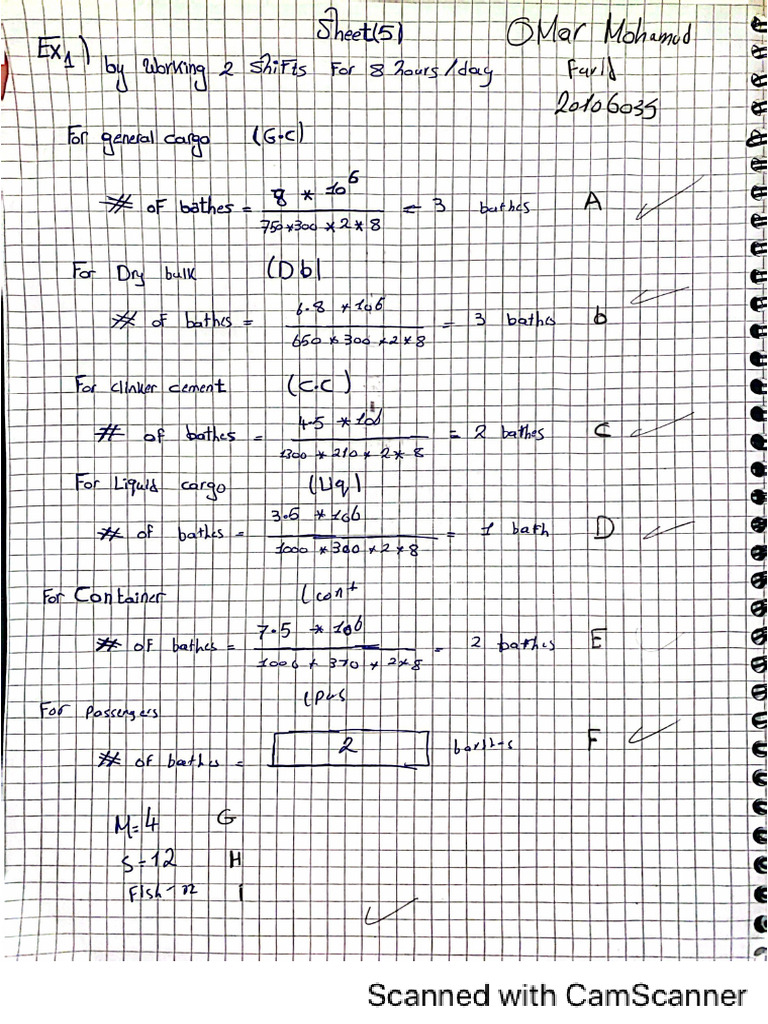 Sheet(5)
Omar Mohamed
Farid
20106035
Ex1) by working 2 shifts For 8 hours/day
For general cargo (G.C)
# of bathes = 8 * 10^6 / 750*300*2*8 = 3 bathes A
For Dry bulk (Db)
# of bathes = 6.8 * 10^6 / 650*300*2*8 = 3 bathes b
For clinker cement (C.C)
# of bathes = 4.5 * 10^6 / 1300*210*2*8 = 2 bathes C
For Liquid cargo (Liq)
# of bathes = 3.5 * 10^6 / 1000*300*2*8 = 1 bath D
For Container (cont
# of bathes = 7.5 * 10^6 / 1000*370*2*8 = 2 bathes E
For Passengers (pas
# of bathes = 2 F
M=4 G
S=12 H
Fish- I
Scanned with CamScanner